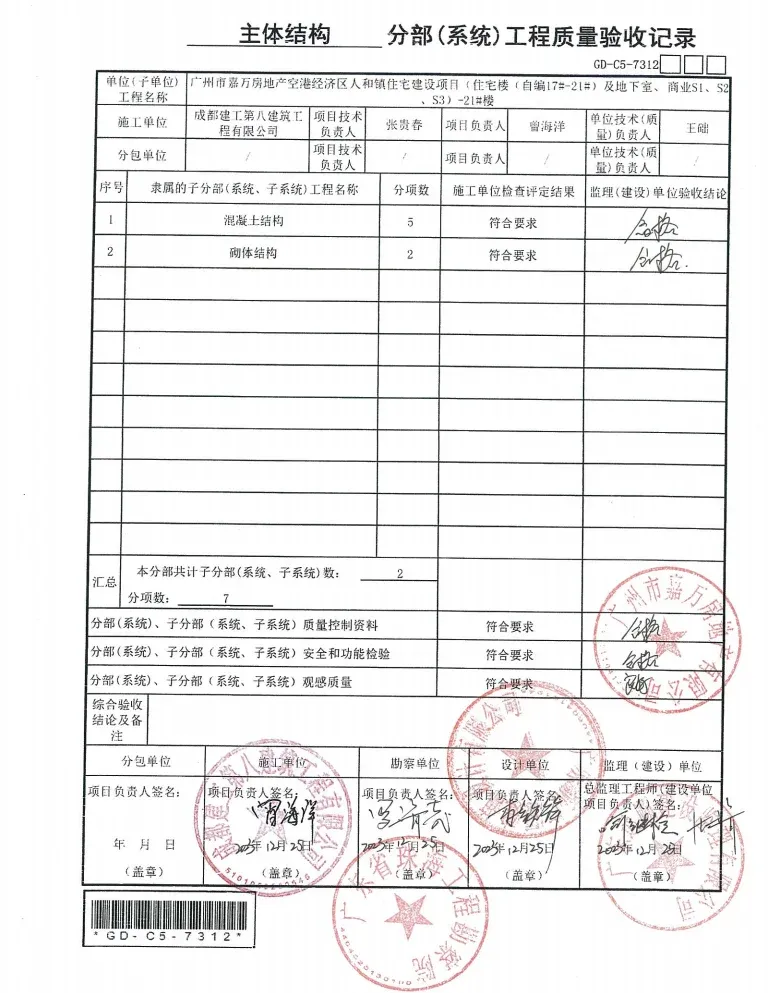 主体结构 分部(系统)工程质量验收记录
GD-C5-7312
单位(子单位)工程名称 广州市嘉万房地产空港经济区人和镇住宅建设项目(住宅楼(自编17#-21#)及地下室、商业S1、S2、S3)-21#楼
施工单位 成都建工第八建筑工程有限公司 项目技术负责人 张贵春 项目负责人 曾海洋 单位技术(质量)负责人 王础
分包单位 / 项目技术负责人 / 项目负责人 / 单位技术(质量)负责人 /
序号 隶属的子分部(系统、子系统)工程名称 分项数 施工单位检查评定结果 监理(建设)单位验收结论
1 混凝土结构 5 符合要求 合格
2 砌体结构 2 符合要求 合格
汇总 本分部共计子分部(系统、子系统)数: 2
分项数: 7
分部(系统)、子分部(系统、子系统)质量控制资料 符合要求 合格
分部(系统)、子分部(系统、子系统)安全和功能检验 符合要求 合格
分部(系统)、子分部(系统、子系统)观感质量 符合要求
综合验收结论及备注
分包单位 施工单位 勘察单位 设计单位 监理(建设)单位
项目负责人签名: 项目负责人签名: 项目负责人签名: 项目负责人签名: 总监理工程师(建设单位项目负责人)签名:
曾海洋
年 月 日 2023年12月25日 2023年12月25日 2023年12月25日 2023年12月25日
(盖章) (盖章) (盖章) (盖章) (盖章)
广州市嘉万房地产有限公司
成都建工第八建筑工程有限公司
广东省珠海工程勘察院
*GD-C5-7312*